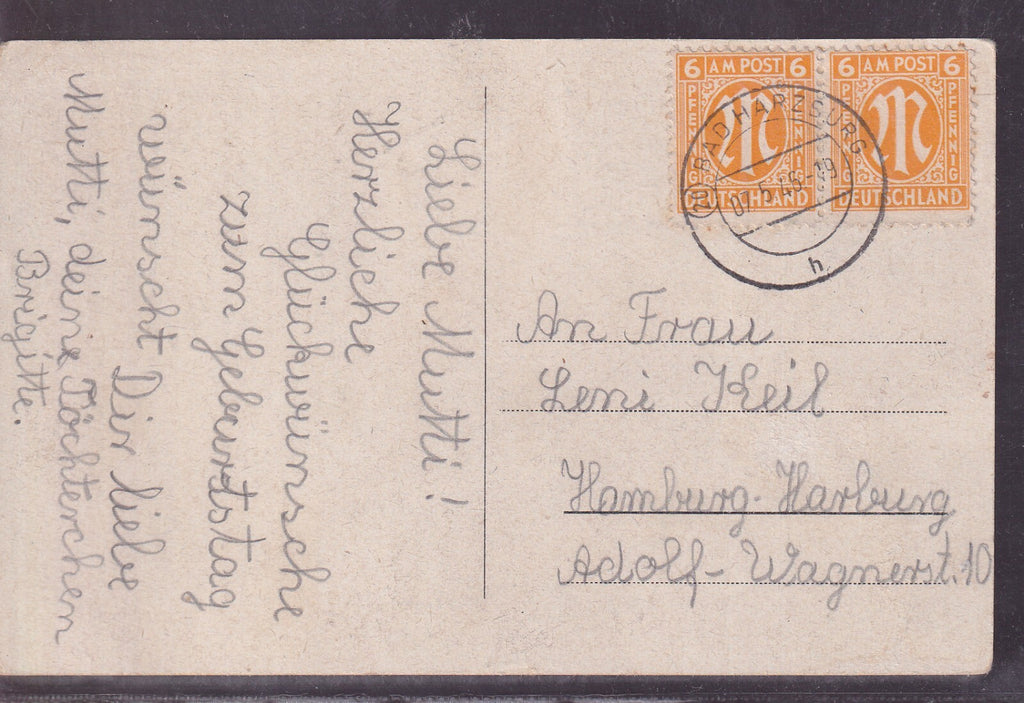 Liebe Mutti!
Herzliche
Glückwünsche
zum Geburtstag
wünscht Dir liebe
Mutti, deine Töchterchen
Brigitte.
6 AM POST 6
PFENNIG
PFENNIG
DEUTSCHLAND
6 AM POST 6
PFENNIG
PFENNIG
DEUTSCHLAND
(20) BAD HARZBURG
07.5.46-19
h
An Frau
Leni Keil
Hamburg-Harburg
Adolf-Wagnerst. 10